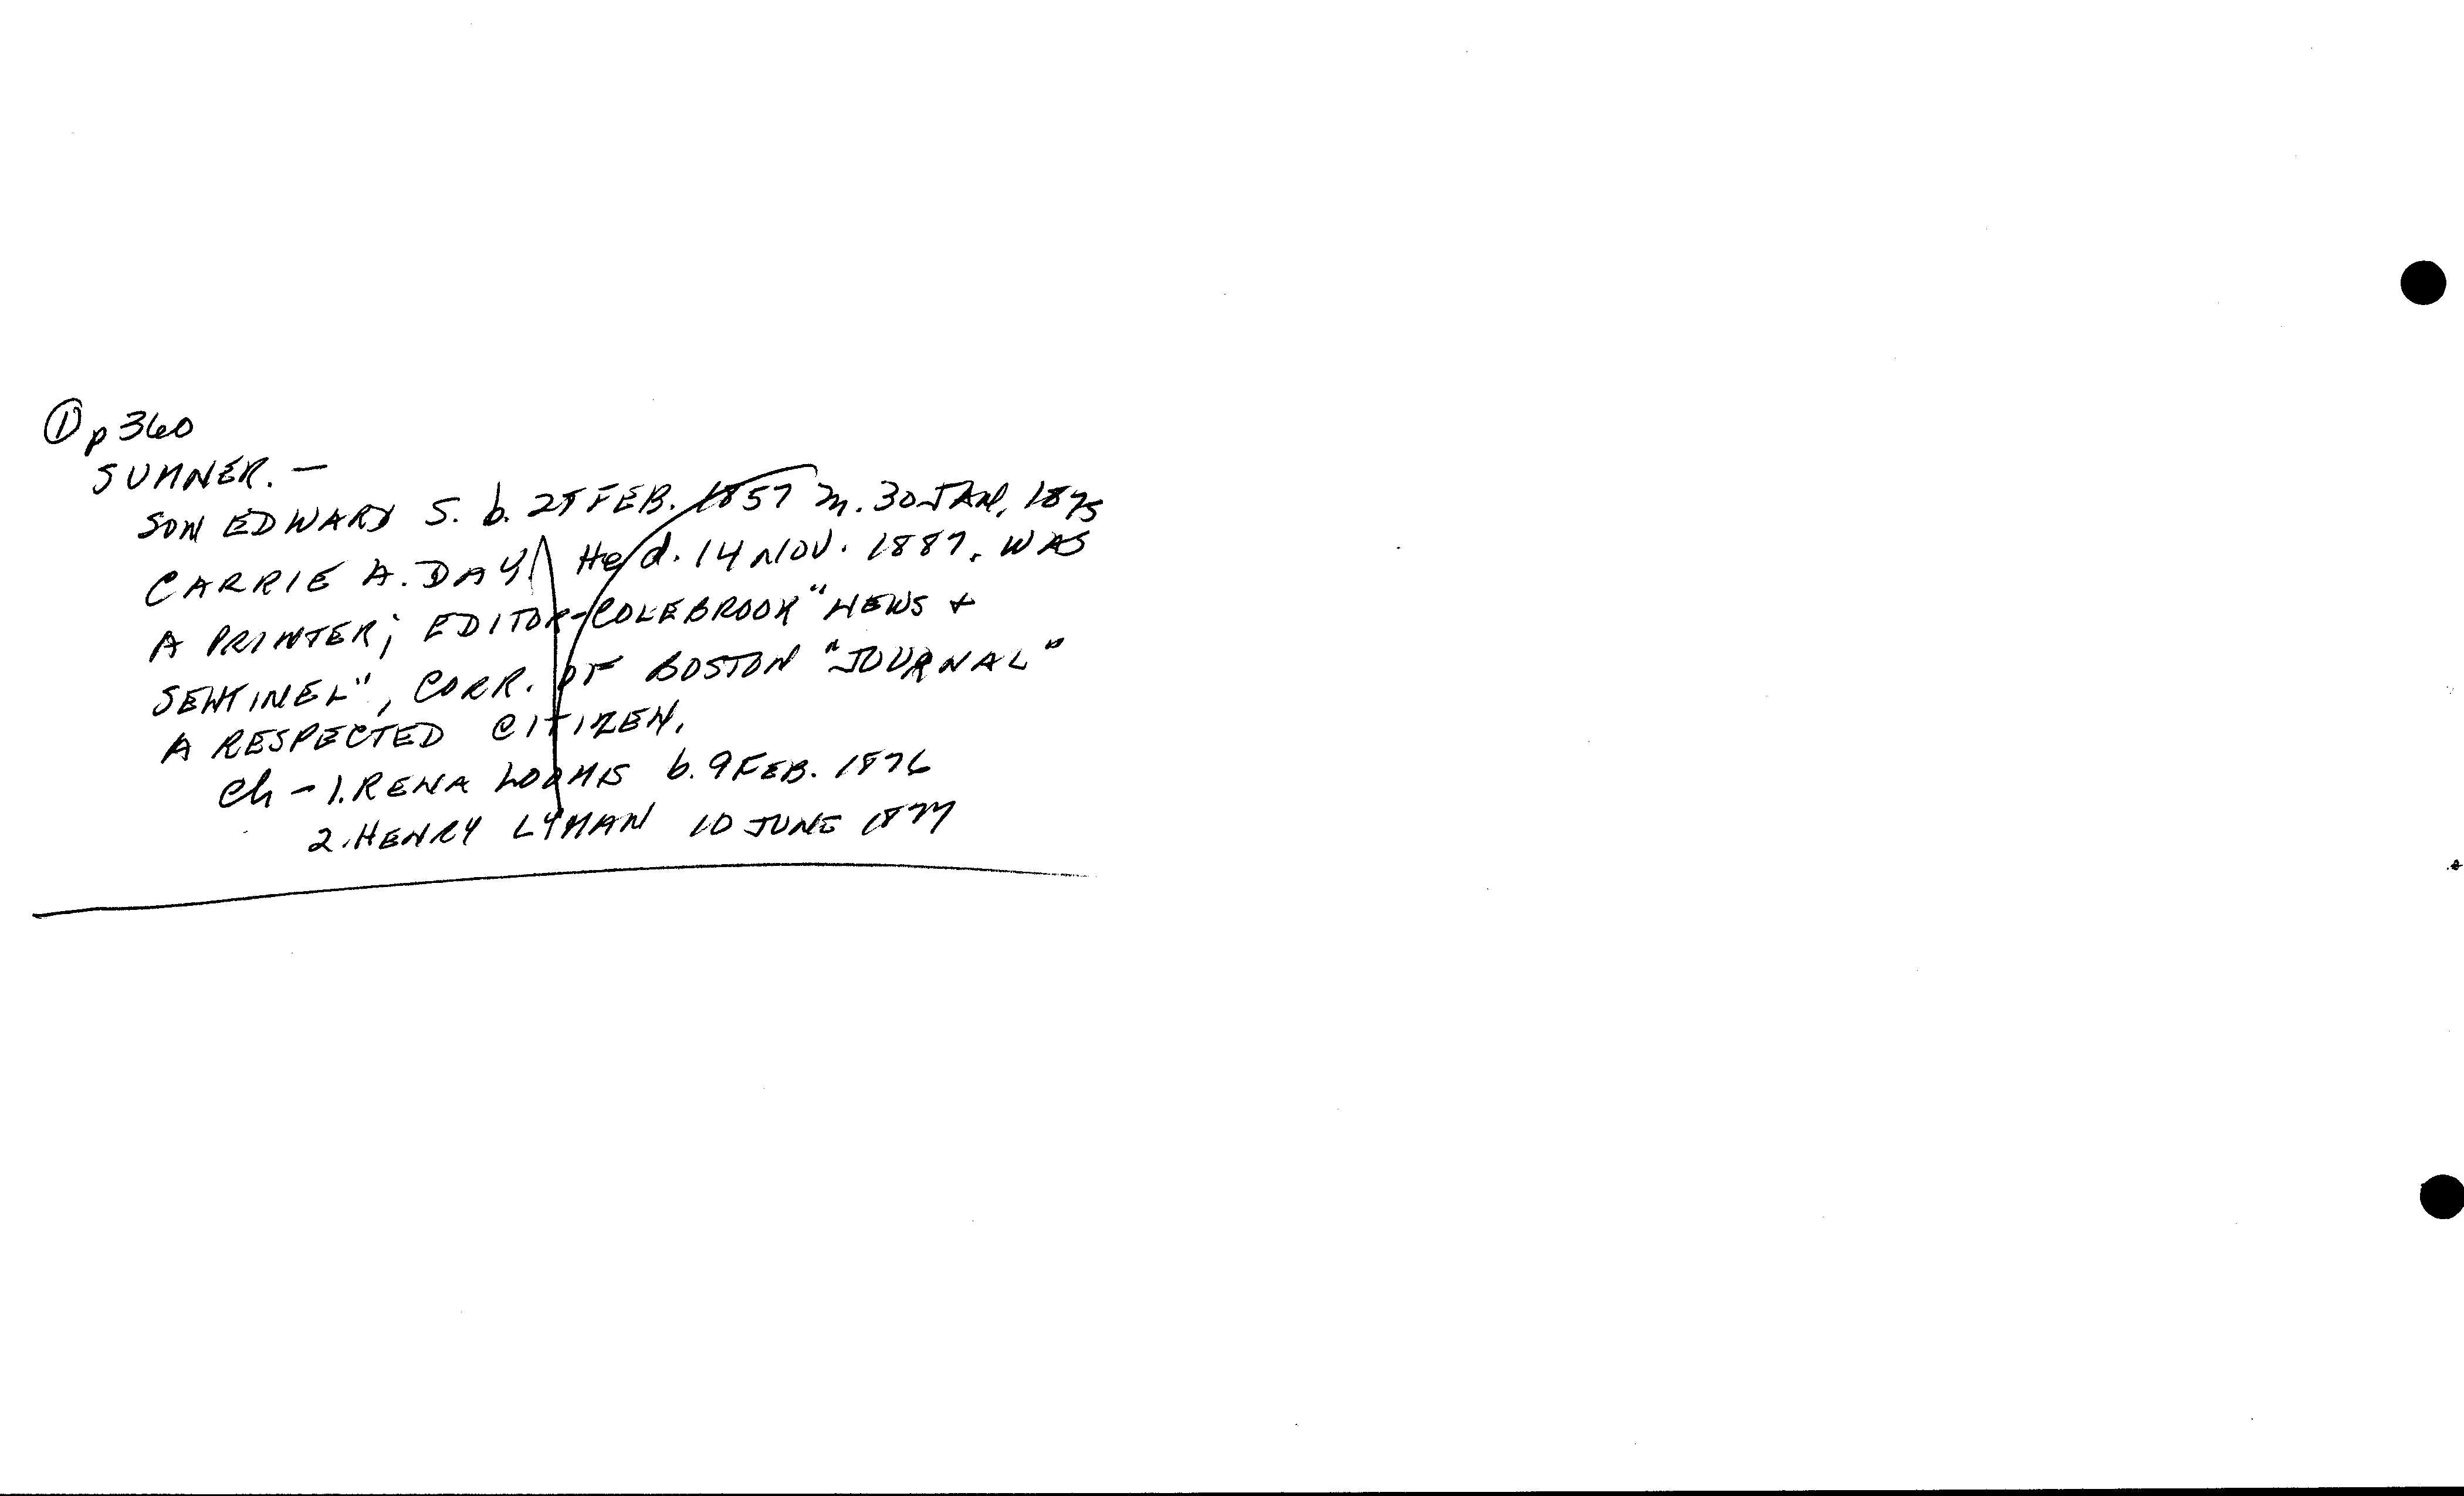 ① p 360
SUMNER. —
SON EDWARD S. b. FEB. 1857 m. 30 JAN. 1875
CARRIE A. DAY. He d. 14 NOV. 1887. WAS
A PRINTER; EDITOR-COLEBROOK "NEWS +
SENTINEL", CORR. OF BOSTON "JOURNAL"
A RESPECTED CITIZEN.
Ch - 1. RENA LOOMIS b. 9 FEB. 1876
2. HENRY LYMAN 10 JUNE